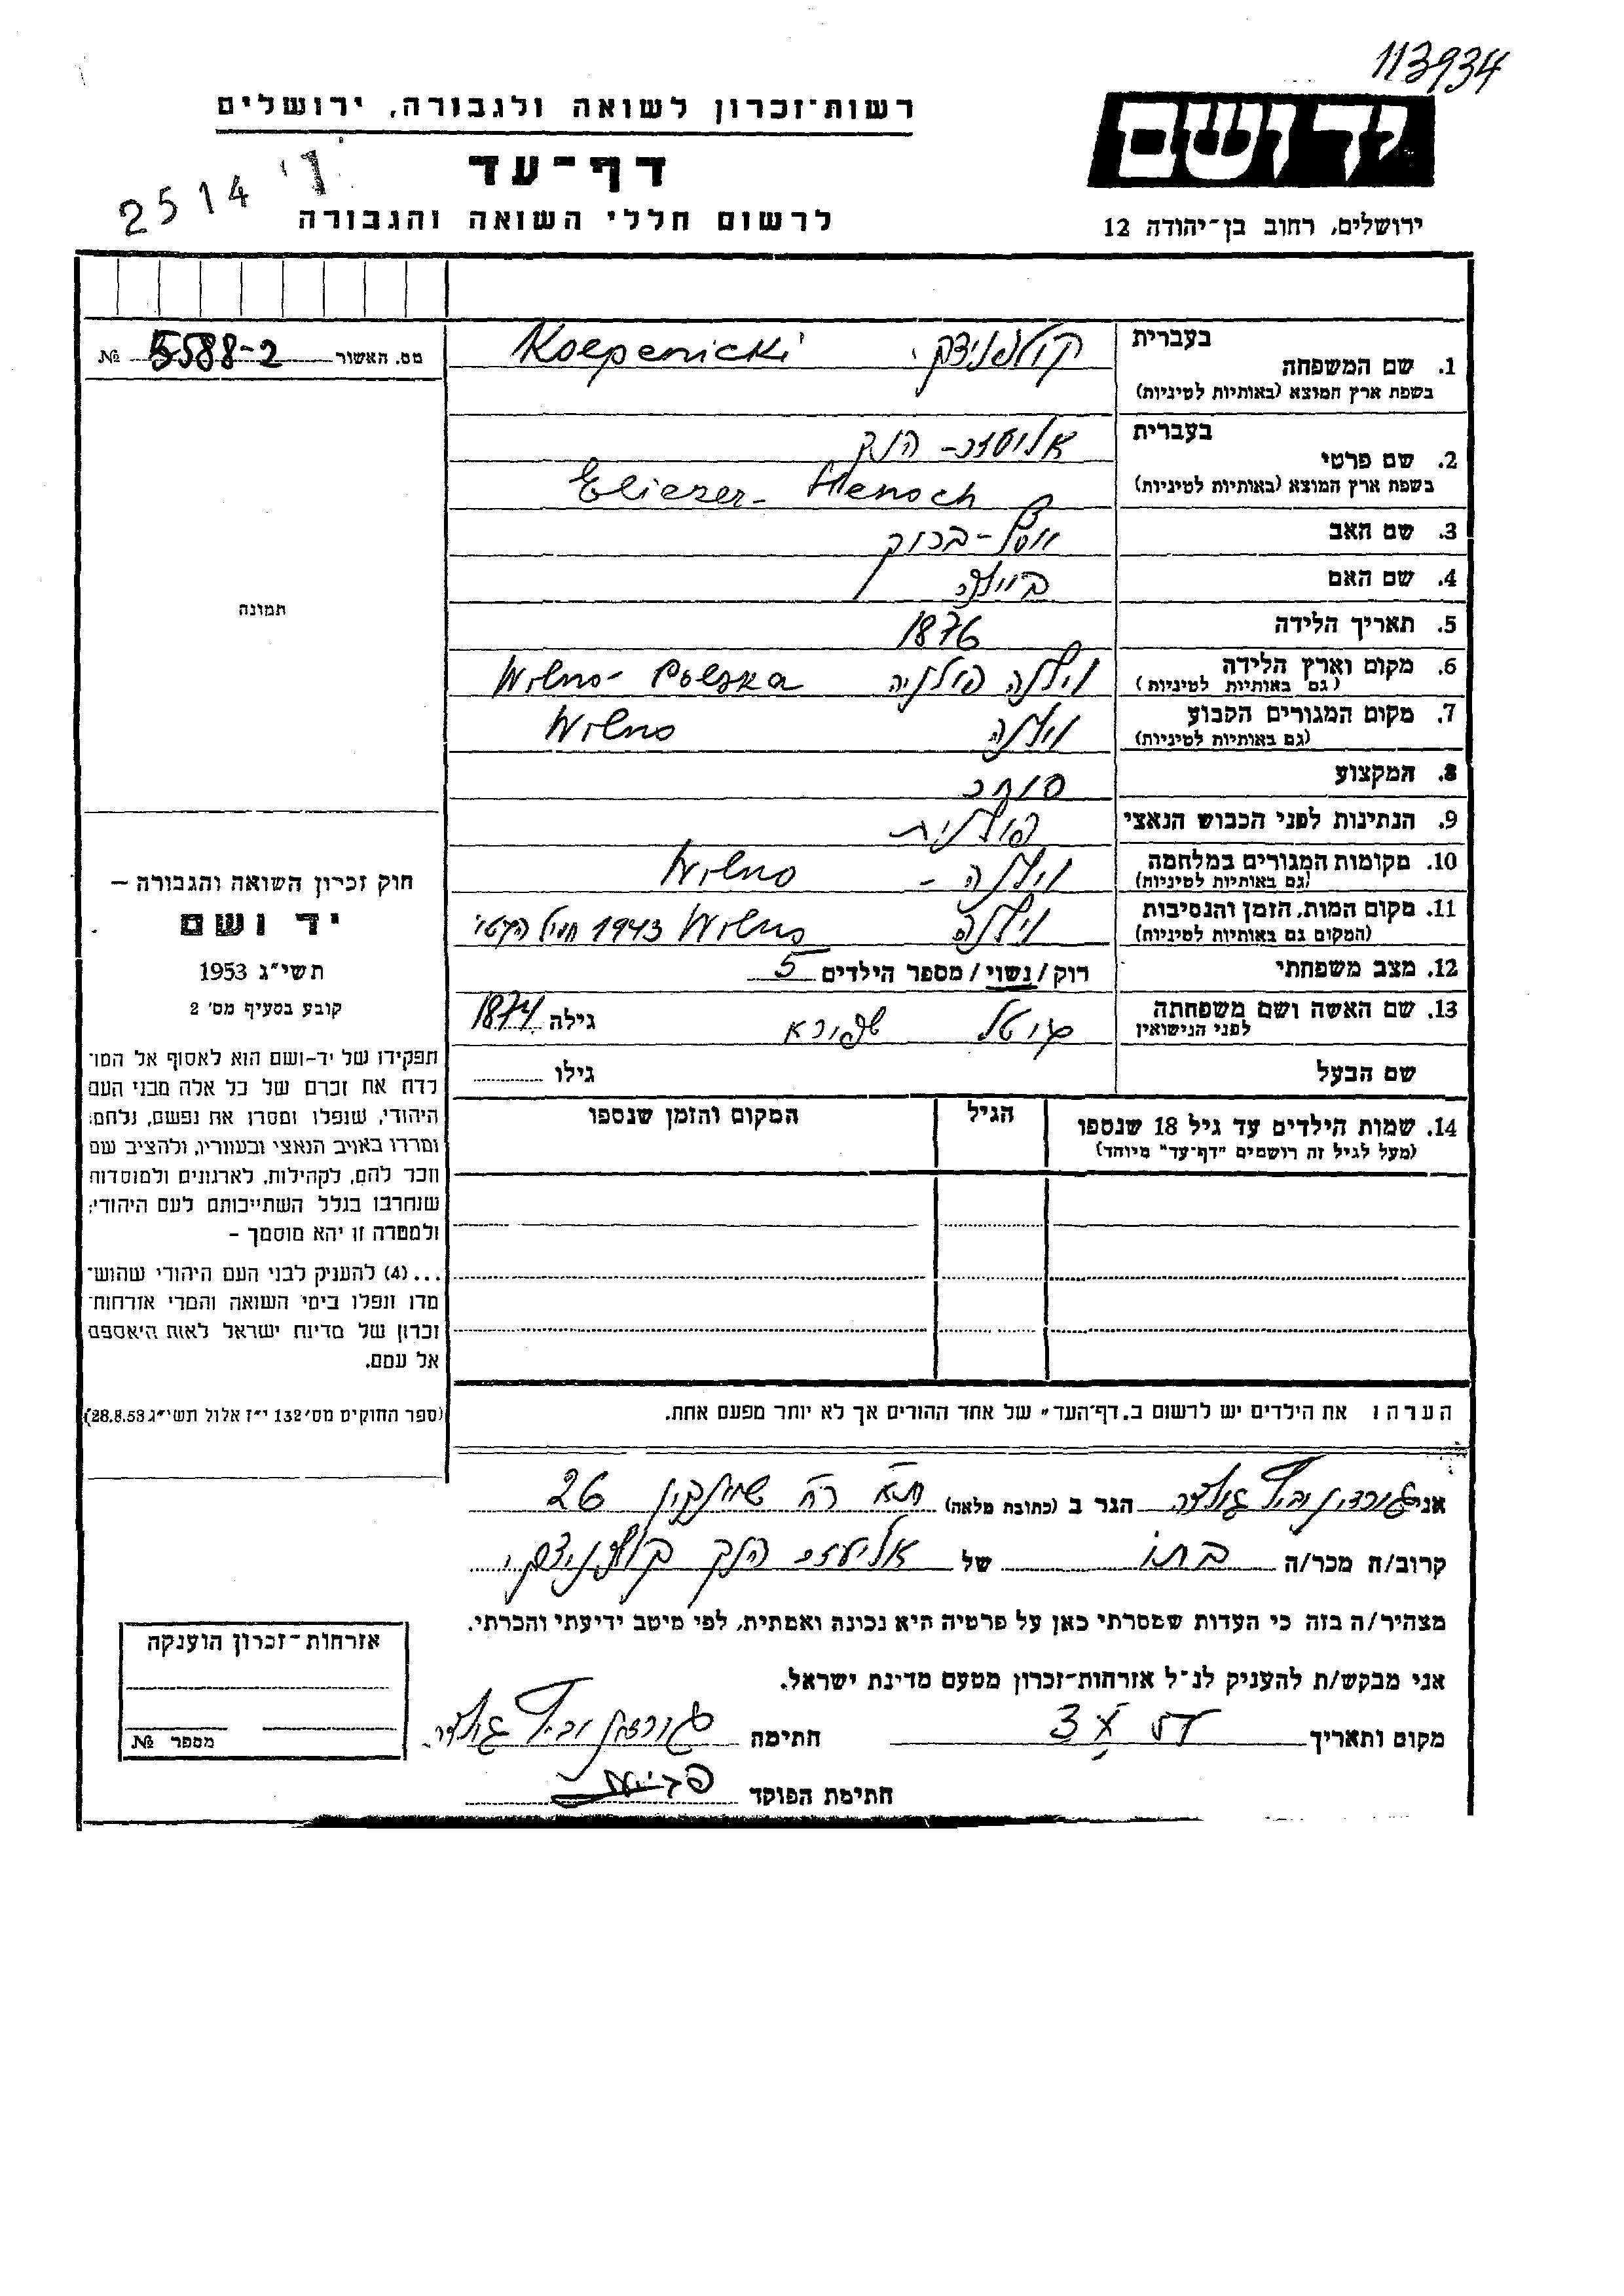 113934
רשות־זכרון לשואה ולגבורה, ירושלים
יד ושם
דף־עד
2514
לרשום חללי השואה והגבורה
ירושלים, רחוב בן־יהודה 12
מס. האשור 5588-2 №
בעברית
1. שם המשפחה Koepenicki
בשפת ארץ המוצא (באותיות לטיניות)
בעברית
2. שם פרטי אליעזר - הנך
בשפת ארץ המוצא (באותיות לטיניות) Eliezer - Henoch
3. שם האב יוסף - ברוך
4. שם האם ביילה
5. תאריך הלידה 1876
6. מקום וארץ הלידה וילנה פולניה Wilno - Polska
(גם באותיות לטיניות)
7. מקום המגורים הקבוע וילנה Wilno
(גם באותיות לטיניות)
8. המקצוע סוחר
9. הנתינות לפני הכבוש הנאצי פולנית
10. מקומות המגורים במלחמה וילנה - Wilno
(גם באותיות לטיניות)
11. מקום המות, הזמן והנסיבות וילנה Wilno 1943
(המקום גם באותיות לטיניות)
12. מצב משפחתי רוק/נשוי/מספר הילדים 5
13. שם האשה ושם משפחתה גילה 1874
לפני הנישואין
שם הבעל גילו
14. שמות הילדים עד גיל 18 שנספו הגיל המקום והזמן שנספו
(מעל לגיל זה רושמים "דף־עד" מיוחד)
תמונה
חוק זכרון השואה והגבורה –
יד ושם
תשי"ג 1953
קובע בסעיף מס' 2
תפקידו של יד-ושם הוא לאסוף אל המו־
לדת את זכרם של כל אלה מבני העם
היהודי, שנפלו ומסרו את נפשם, נלחמו
ומרדו באויב הנאצי ובעוזריו, ולהציב שם
וזכר להם, לקהילות, לארגונים ולמוסדות
שנחרבו בגלל השתייכותם לעם היהודי;
ולמטרה זו יהא מוסמך –
...(4) להעניק לבני העם היהודי שהוש־
מדו ונפלו בימי השואה והמרי אזרחות־
זכרון של מדינת ישראל לאות היאספם
אל עמם.
(ספר החוקים מס' 132 י"ז אלול תשי"ג 28.8.53)
הערה: את הילדים יש לרשום ב„דף־העד" של אחד ההורים אך לא יותר מפעם אחת.
אני גורדון הגר ב (כתובת מלאה) תא רח 26
קרוב/ה מכר/ה בתו של אליעזר הנך
מצהיר/ה בזה כי העדות שמסרתי כאן על פרטיה היא נכונה ואמתית, לפי מיטב ידיעתי והכרתי.
אני מבקש/ת להעניק לנ"ל אזרחות־זכרון מטעם מדינת ישראל.
מקום ותאריך חתימה גורדון
חתימת הפוקד
אזרחות־זכרון הוענקה
מספר №